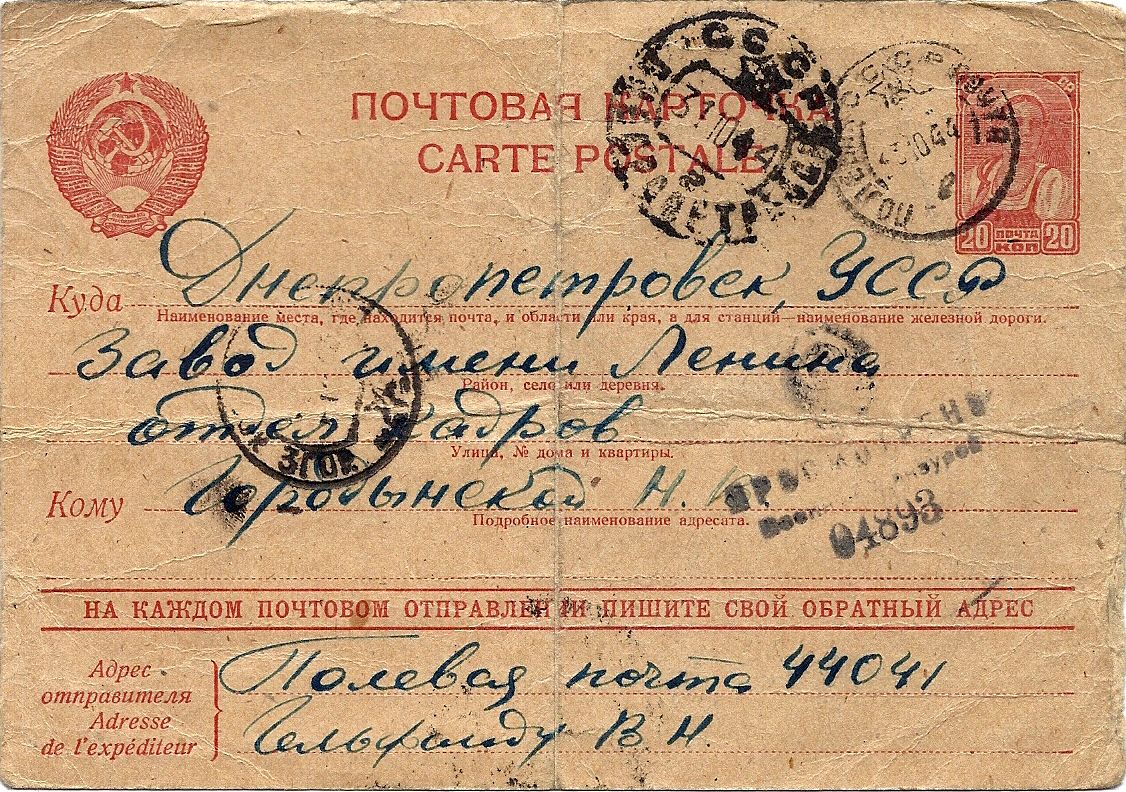 ПОЧТОВАЯ КАРТОЧКА
CARTE POSTALE
СССР
31 10 44
СССР ПОЧТА
10 44
ПОЧТА
20 КОП 20
Куда Днепропетровск, УССР
Наименование места, где находится почта, и области или края, а для станций—наименование железной дороги.
Завод имени Ленина
Район, село или деревня.
отдел кадров
Улица, № дома и квартиры.
Кому Городынской Н.
Подробное наименование адресата.
ПРОСМОТРЕНО
Военной Цензурой
04893
НА КАЖДОМ ПОЧТОВОМ ОТПРАВЛЕНИИ ПИШИТЕ СВОЙ ОБРАТНЫЙ АДРЕС
Адрес
отправителя
Adresse
de l'expéditeur
Полевая почта 44041
Гельфанду В. Н.